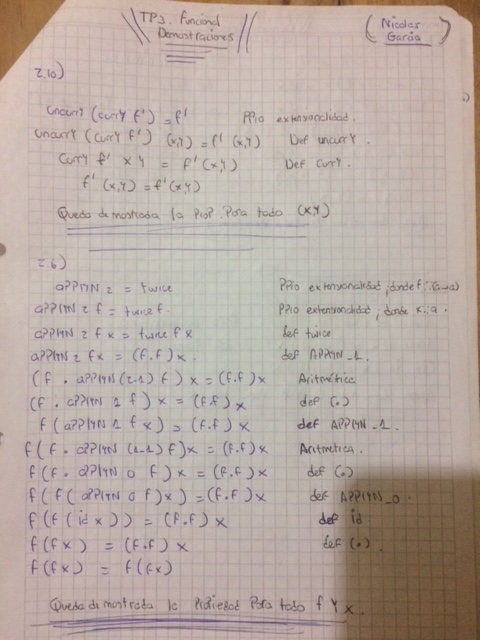 TP3. Funcional
Demostraciones
(Nicolas Garcia)
2.10)
uncurry (curry f') = f' PRio extensionalidad.
uncurry (curry f') (x,y) = f' (x,y) Def uncurry.
curry f' x y = f' (x,y) Def curry.
f' (x,y) = f' (x,y)
Queda demostrada la Prop. Para todo (x,y)
2.6)
appLyN 2 = twice PRio extensionalidad, donde f::(a->a)
appLyN 2 f = twice f PRio extensionalidad, donde x::a.
appLyN 2 f x = twice f x def twice
appLyN 2 f x = (f.f) x. def APPLYN_2.
(f . appLyN (2-1) f) x = (f.f) x Aritmética
(f . appLyN 1 f) x = (f.f) x def (.)
f (appLyN 1 f x) = (f.f) x def APPLYN_1.
f (f . appLyN (1-1) f) x = (f.f) x Aritmética.
f (f . appLyN 0 f) x = (f.f) x def (.)
f (f (appLyN 0 f) x) = (f.f) x def APPLYN_0.
f (f (id x)) = (f.f) x def id
f (f x) = (f.f) x def (.).
f (f x) = f (f x)
Queda demostrada la Propiedad Para todo f y x